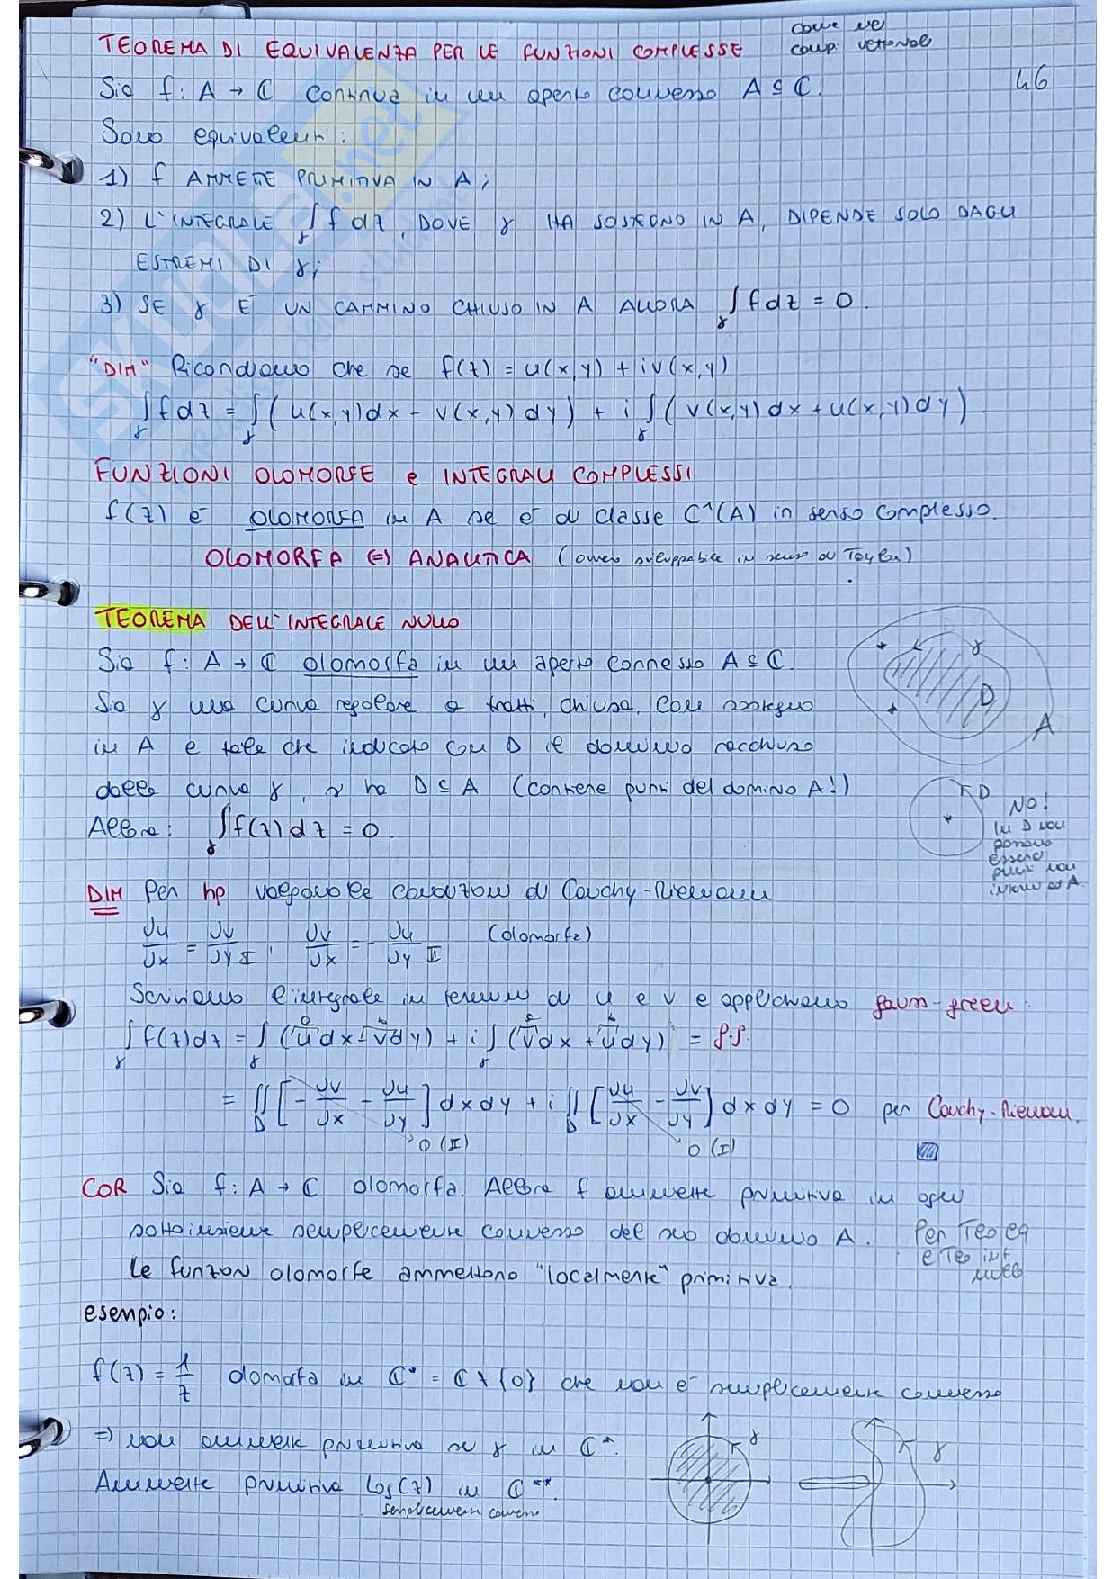 TEOREMA DI EQUIVALENZA PER LE FUNZIONI COMPLESSE
come nei
camp. vettoriali
46
Sia f: A → ℂ continua in un aperto connesso A ⊆ ℂ.
Sono equivalenti:
1) f AMMETTE PRIMITIVA IN A;
2) L'INTEGRALE ∫γ f dz, DOVE γ HA SOSTEGNO IN A, DIPENDE SOLO DAGLI
ESTREMI DI γ;
3) SE γ È UN CAMMINO CHIUSO IN A ALLORA ∫γ f dz = 0.
"DIM" Ricordiamo che se f(z) = u(x,y) + iv(x,y)
∫γ f dz = ∫γ (u(x,y)dx - v(x,y)dy) + i ∫γ (v(x,y)dx + u(x,y)dy)
FUNZIONI OLOMORFE e INTEGRALI COMPLESSI
f(z) è OLOMORFA in A se è di classe C¹(A) in senso complesso.
OLOMORFA (=) ANALITICA (ovvero sviluppabile in serie di Taylor)
TEOREMA DELL'INTEGRALE NULLO
Sia f: A → ℂ olomorfa in un aperto connesso A ⊆ ℂ.
Sia γ una curva regolare a tratti, chiusa, con sostegno
in A e tale che indicato con D il dominio racchiuso
dalla curva γ, si ha D ⊆ A (contiene punti del dominio A!)
Allora: ∫γ f(z) dz = 0.
γ
D
A
D
NO!
In D non
possono
esserci
punti non
interni ad A
DIM Per hp valgono le condizioni di Cauchy-Riemann
∂u/∂x = ∂v/∂y I, ∂v/∂x = -∂u/∂y II (olomorfa)
Scriviamo l'integrale in termini di u e v e applichiamo gauss-green:
∫γ f(z)dz = ∫γ (u dx - v dy) + i ∫γ (v dx + u dy) =
= ∬D [-∂v/∂x - ∂u/∂y] dxdy + i ∬D [∂u/∂x - ∂v/∂y] dxdy = 0 per Cauchy-Riemann.
0 (II) 0 (I)
COR Sia f: A → ℂ olomorfa. Allora f ammette primitiva in ogni
sottoinsieme semplicemente connesso del suo dominio A.
Per Teo eq
e Teo int
nullo
Le funzioni olomorfe ammettono "localmente" primitiva.
esempio:
f(z) = 1/z olomorfa in ℂ* = ℂ \ {0} che non è semplicemente connesso
⇒ non ammette primitiva se γ in ℂ*.
Ammette primitiva Log(z) in ℂ**.
semplicemente connesso
γ
γ